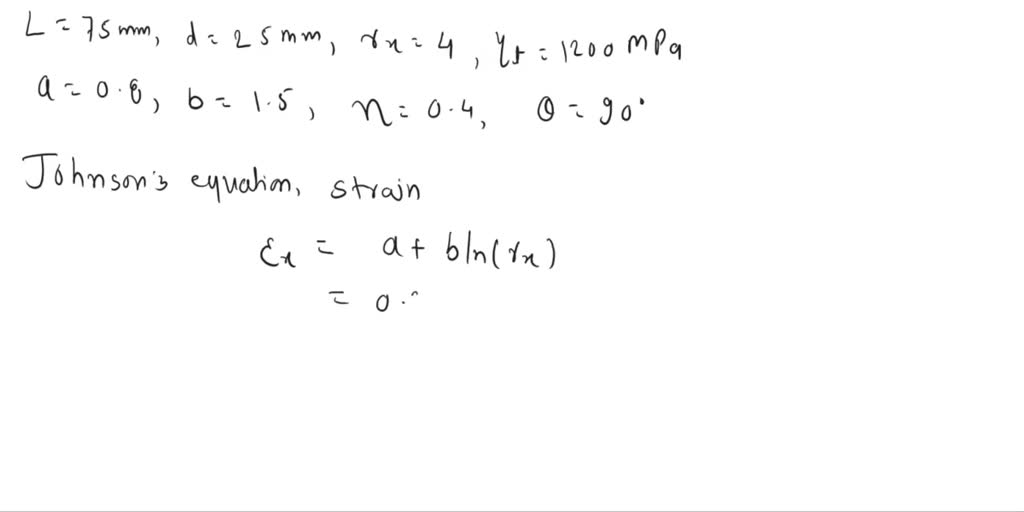 L = 75 mm, d = 25 mm, rx = 4, Yf = 1200 MPa
a = 0.8, b = 1.5, n = 0.4, θ = 90°
Johnson's equation, strain
εx = a + b ln(rx)
= 0.